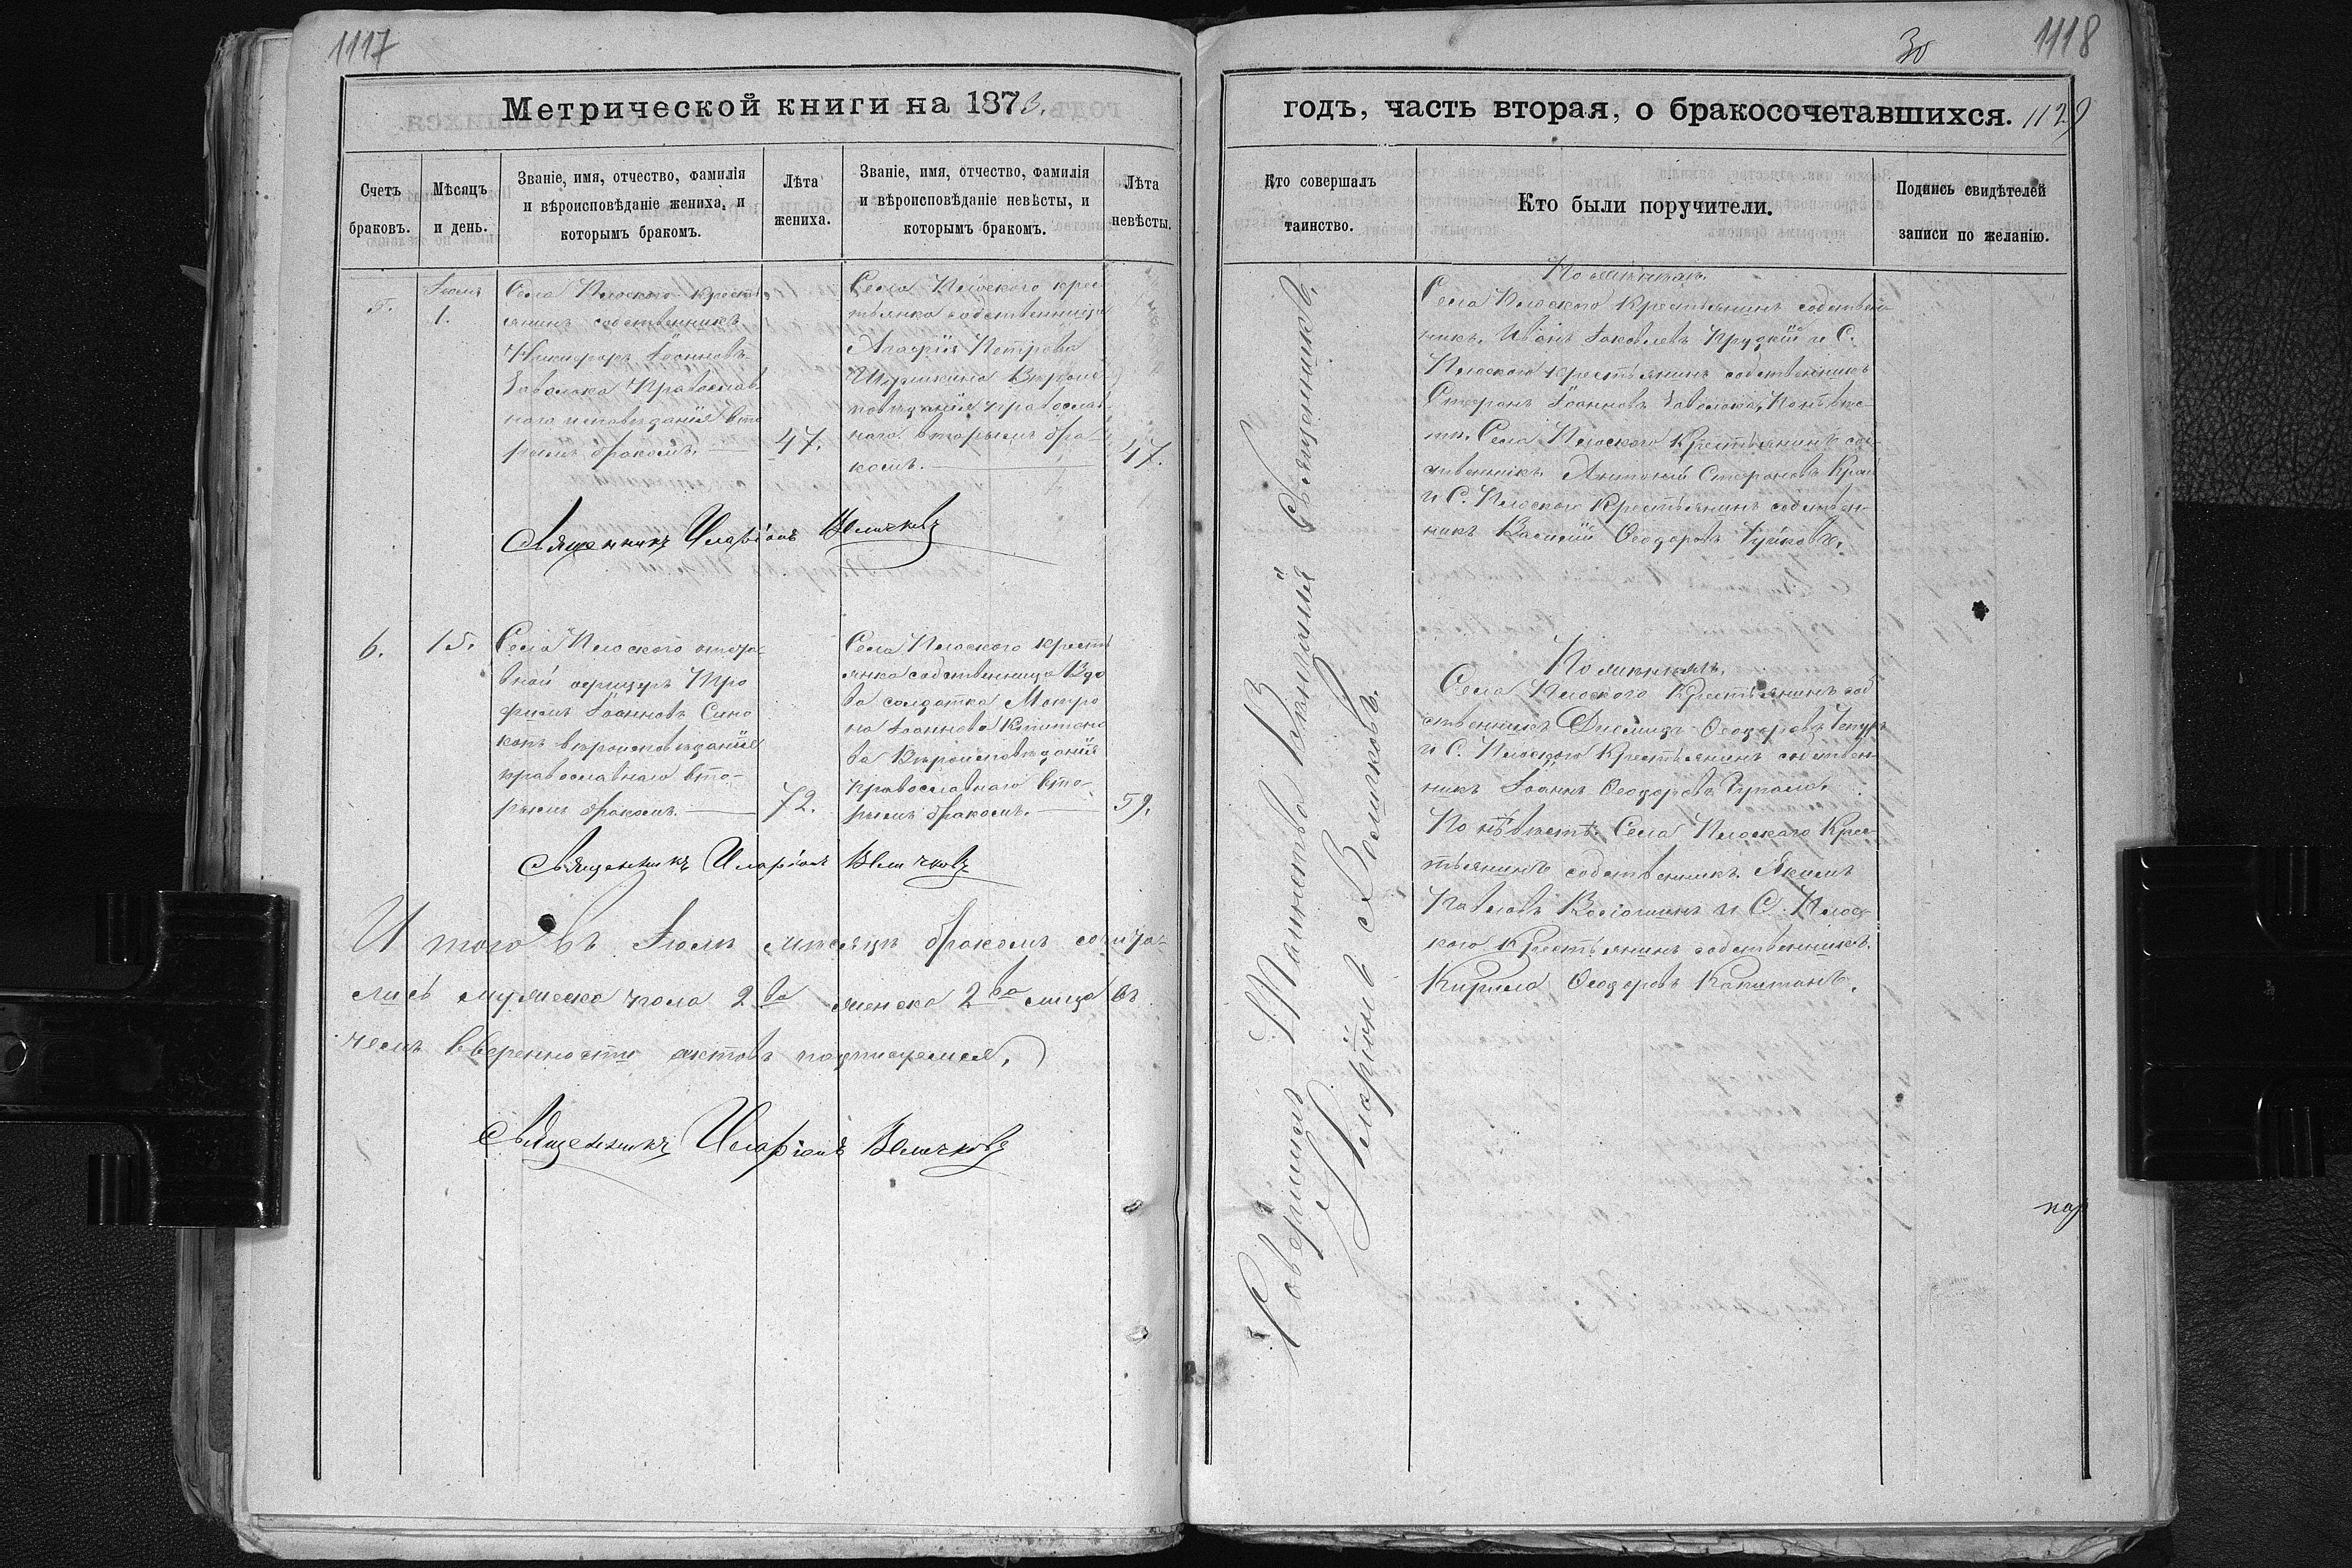 1117
Метрической книги на 1873.
Счетъ браковъ.
Мѣсяцъ и день.
Званіе, имя, отчество, фамилія и вѣроисповѣданіе жениха, и которымъ бракомъ.
Лѣта жениха.
Званіе, имя, отчество, фамилія и вѣроисповѣданіе невѣсты, и которымъ бракомъ.
Лѣта невѣсты.
5.
Іюля
1.
Села Плоского кресть
янинъ собственникъ
Никифоръ Іоанновъ
Заволока Православ
ного исповѣданія вто
рымъ бракомъ.
47.
Села Плоского крес
тьянка собственница
Агафія Петрова
Вѣроис
повѣданія православ
ного вторымъ бра
комъ.
47.
Священникъ Иларіонъ Величковъ
6.
15.
Села Плоского отста
вной офицеръ Тро
фимъ Іоанновъ Сино
конъ вѣроисповѣданія
православнаго вто-
рымъ бракомъ.
72.
Села Плоского кресть
янка собственница Вдо
ва солдатка Матро
на Іоаннова
ва Вѣроисповѣданія
православнаго вто-
рымъ бракомъ.
59.
Священникъ Иларіонъ Величковъ
Итого въ Іюлѣ мѣсяцѣ бракомъ сочета-
лись мужеска пола 2ва женска 2ва лица въ
чемъ вѣрности актовъ подписуемся,
Священникъ Иларіонъ Величковъ
30
1118
годъ, часть вторая, о бракосочетавшихся. 1129
Кто совершалъ таинство.
Кто были поручители.
Подпись свидѣтелей записи по желанію.
Совершилъ Таинство Священникъ
Иларіонъ Величковъ.
По женихѣ.
Села Плоского Крестьянинъ собствен-
никъ Иванъ Іаковлевъ Прудкій и С.
Плоского крестьянинъ собственникъ
Стефанъ Іоанновъ Заволока, По невѣс-
тѣ. Села Плоского Крестьянинъ соб-
ственникъ Антоній Стефановъ Край
и С. Плоского Крестьянинъ собствен-
никъ Василій Ѳеодоровъ
По женихѣ.
Села Плоского Крестьянинъ соб
ственникъ Діомидъ Ѳеодоровъ
и С. Плоского Крестьянинъ собствен-
никъ Іоаннъ Ѳеодоровъ
По невѣстѣ. Села Плоскаго Крес-
тьянинъ собственникъ Якимъ
Павловъ Волошинъ и С. Плос-
кого Крестьянинъ собственникъ
Кирилъ Ѳеодоровъ Капитанъ.